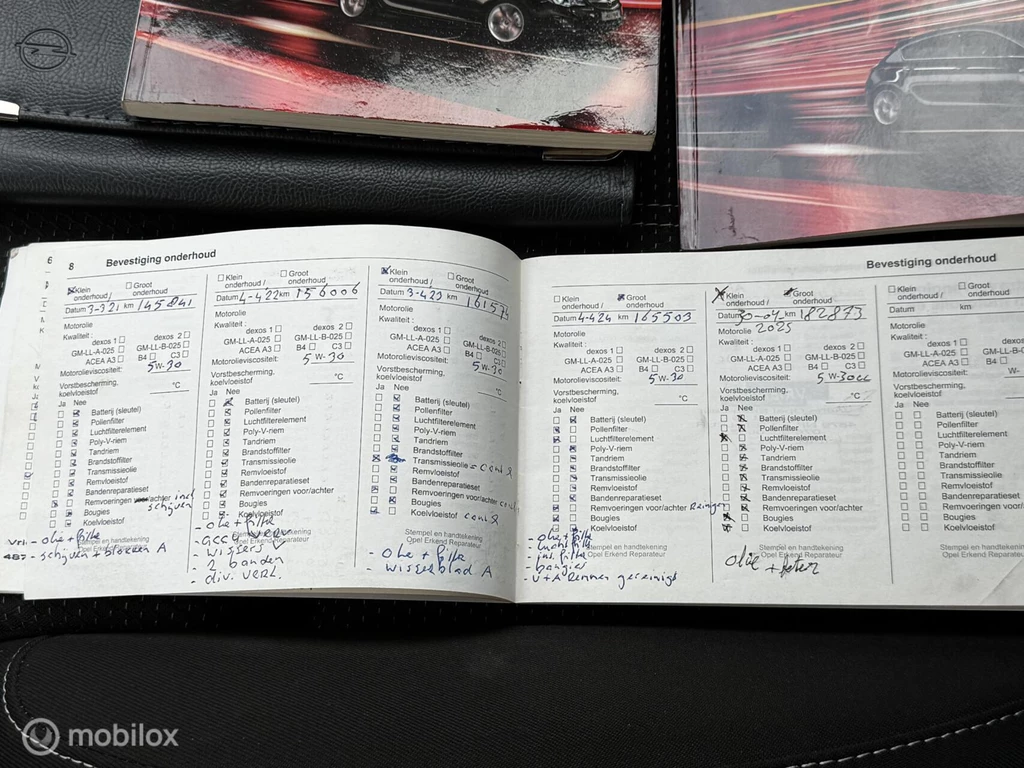 6
8 Bevestiging onderhoud
Klein onderhoud / Groot onderhoud
Datum 3-321 km 145841
Motorolie
Kwaliteit :
dexos 1 dexos 2
GM-LL-A-025 GM-LL-B-025
ACEA A3 B4 C3
Motorolieviscositeit: 5W-30
Vorstbescherming, koelvloeistof °C
Ja Nee
Batterij (sleutel)
Pollenfilter
Luchtfilterelement
Poly-V-riem
Tandriem
Brandstoffilter
Transmissieolie
Remvloeistof
Bandenreparatieset
Remvoeringen voor/achter incl schijven
Bougies
Koelvloeistof
Stempel en handtekening
Opel Erkend Reparateur
- olie + filter
- schijven + blokken A
Klein onderhoud / Groot onderhoud
Datum 4-422 km 156006
Motorolie
Kwaliteit :
dexos 1 dexos 2
GM-LL-A-025 GM-LL-B-025
ACEA A3 B4 C3
Motorolieviscositeit: 5W-30
Vorstbescherming, koelvloeistof °C
Ja Nee
Batterij (sleutel)
Pollenfilter
Luchtfilterelement
Poly-V-riem
Tandriem
Brandstoffilter
Transmissieolie
Remvloeistof
Bandenreparatieset
Remvoeringen voor/achter
Bougies
Koelvloeistof
Stempel en handtekening
Opel Erkend Reparateur
- olie + filter
- accu verv
- wissers V
- 2 banden
- div. verl.
Klein onderhoud / Groot onderhoud
Datum 3-423 km 161574
Motorolie
Kwaliteit :
dexos 1 dexos 2
GM-LL-A-025 GM-LL-B-025
ACEA A3 B4 C3
Motorolieviscositeit: 5W-30
Vorstbescherming, koelvloeistof °C
Ja Nee
Batterij (sleutel)
Pollenfilter
Luchtfilterelement
Poly-V-riem
Tandriem
Brandstoffilter
Transmissieolie
Remvloeistof
Bandenreparatieset
Remvoeringen voor/achter
Bougies
Koelvloeistof
Stempel en handtekening
Opel Erkend Reparateur
- olie + filter
- wisserblad A
Bevestiging onderhoud
Klein onderhoud / Groot onderhoud
Datum 4-424 km 165503
Motorolie
Kwaliteit :
dexos 1 dexos 2
GM-LL-A-025 GM-LL-B-025
ACEA A3 B4 C3
Motorolieviscositeit: 5W-30
Vorstbescherming, koelvloeistof °C
Ja Nee
Batterij (sleutel)
Pollenfilter
Luchtfilterelement
Poly-V-riem
Tandriem
Brandstoffilter
Transmissieolie
Remvloeistof
Bandenreparatieset
Remvoeringen voor/achter
Bougies
Koelvloeistof
Stempel en handtekening
Opel Erkend Reparateur
- olie + filter
- luchtfilter
- int. filter
- bougies
- V+A Remmen gereinigd
Klein onderhoud / Groot onderhoud
Datum 30-04 km 182873
Motorolie 2025
Kwaliteit :
dexos 1 dexos 2
GM-LL-A-025 GM-LL-B-025
ACEA A3 B4 C3
Motorolieviscositeit: 5W30
Vorstbescherming, koelvloeistof °C
Ja Nee
Batterij (sleutel)
Pollenfilter
Luchtfilterelement
Poly-V-riem
Tandriem
Brandstoffilter
Transmissieolie
Remvloeistof
Bandenreparatieset
Remvoeringen voor/achter
Bougies
Koelvloeistof
Stempel en handtekening
Opel Erkend Reparateur
Olie + filter
Klein onderhoud / Groot onderhoud
Datum km
Motorolie
Kwaliteit :
dexos 1
GM-LL-A-025 GM-LL-B-025
ACEA A3 B4
Motorolieviscositeit: W-
Vorstbescherming, koelvloeistof
Ja Nee
Batterij (sleutel)
Pollenfilter
Luchtfilterelement
Poly-V-riem
Tandriem
Brandstoffilter
Transmissieolie
Remvloeistof
Bandenreparatieset
Remvoeringen voor/achter
Bougies
Koelvloeistof
Stempel en handtekening
Opel Erkend Reparateur
mobilox